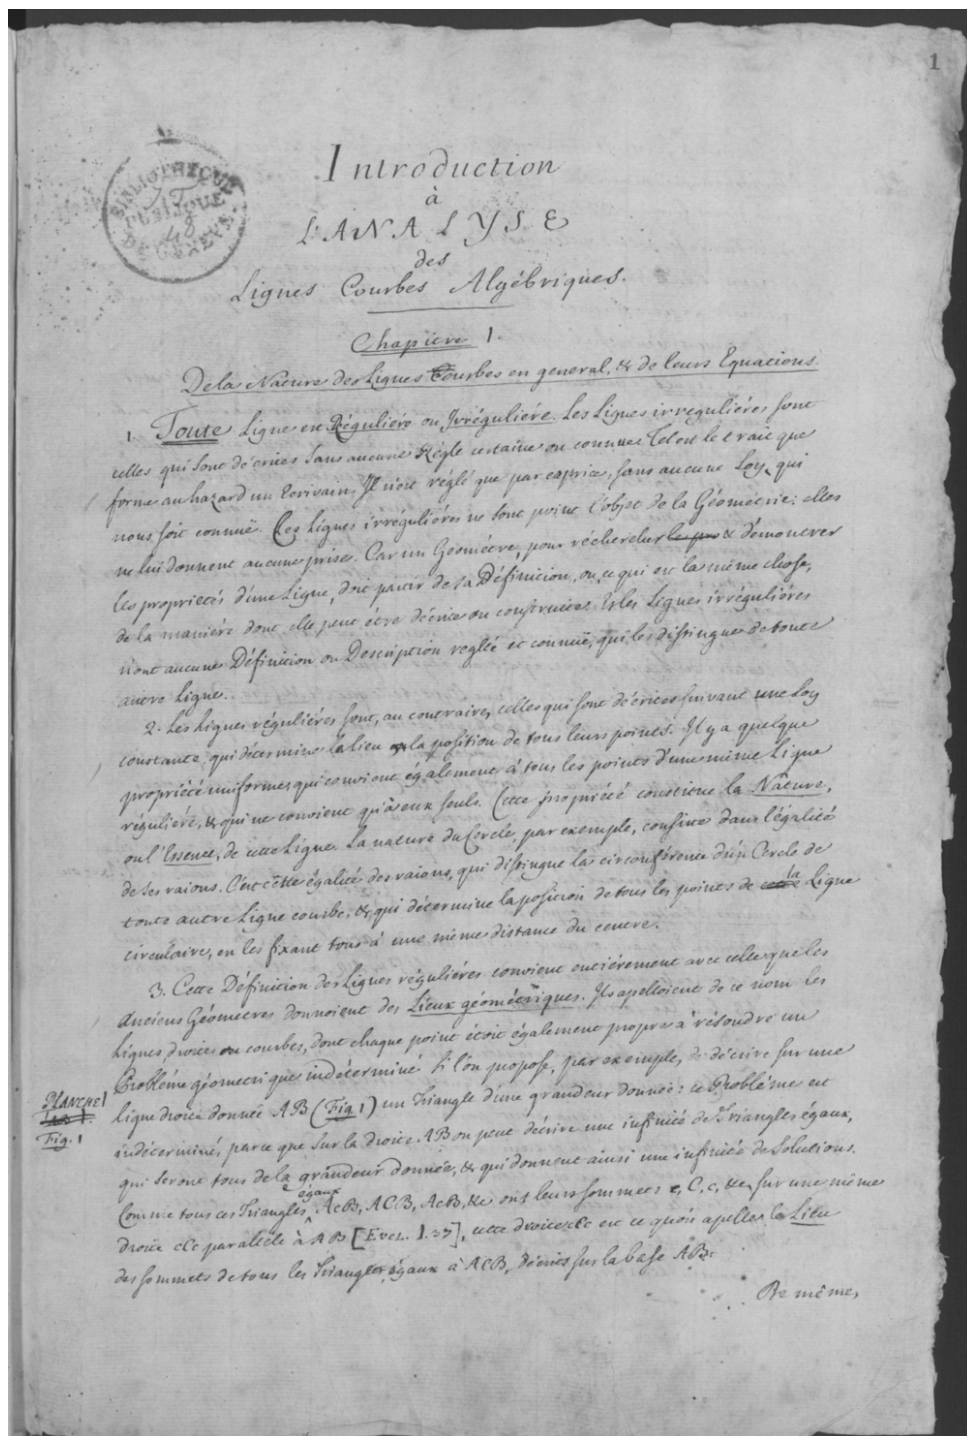 1
BIBLIOTHEQUE
PUBLIQUE
48
DE GENEVE
Introduction
à
L'ANALYSE
des
Lignes Courbes Algébriques.
Chapitre 1.
De la Nature des Lignes Courbes en general, & de leurs Equations.
1. Toute Ligne est Réguliére ou Irréguliére. Les Lignes irreguliéres sont
celles qui sont décrites sans aucune Régle certaine ou connue. Tel est le trait que
forme au hazard un Ecrivain. Il n'est réglé que par caprice, sans aucune Loy, qui
nous soit connuë. Ces Lignes irréguliéres ne sont point l'objet de la Géométrie: elles
ne lui donnent aucune prise. Car un Géométre, pour rechercher & démontrer
les proprietés d'une Ligne, doit partir de sa Définition, ou, ce qui est la même chose,
de la maniére dont elle peut être décrite ou construite. Et les Lignes irréguliéres
n'ont aucune Définition ou Description reglée et connuë, qui les distingue de toute
autre Ligne.
2. Les Lignes réguliéres sont, au contraire, celles qui sont décrites suivant une Loy
constante, qui détermine le lieu ou la position de tous leurs points. Il y a quelque
propriété uniforme, qui convient également à tous les points d'une même Ligne
réguliére, & qui ne convient qu'à eux seuls. Cette propriété constitue la Nature,
ou l'Essence, de cette Ligne. La nature du Cercle, par exemple, consiste dans l'égalité
de ses raions. C'est cette égalité des raions, qui distingue la circonférence d'un Cercle de
toute autre Ligne courbe, & qui détermine la position de tous les points de la Ligne
circulaire, en les fixant tous à une même distance du centre.
3. Cette Définition des Lignes réguliéres convient entiérement avec celle que les
Anciens Géométres donnoient des Lieux géométriques. Ils apelloient de ce nom les
Lignes, droites ou courbes, dont chaque point étoit également propre à résoudre un
Probléme géometrique indéterminé. Si l'on propose, par exemple, de décrire sur une
PLANCHE I
ligne droite donnée AB (Fig. 1) un Triangle d'une grandeur donnée: ce Probléme est
Fig. 1
indéterminé, parce que sur la droite AB on peut décrire une infinité de Triangles égaux,
qui seront tous de la grandeur donnée, & qui donnent ainsi une infinité de Solutions.
Comme tous ces Triangles égaux AcB, ACB, AcB, &c ont leurs sommets c, C, c, &c sur une même
droite cCc parallèle à AB [Eucl. I. 37], cette droite cCc est ce qu'on apelle le Lieu
des sommets de tous les Triangles égaux à ACB, décrits sur la base AB.
De même,